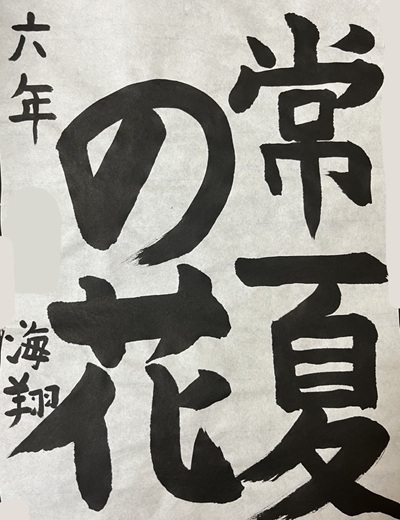 常夏
の花
六年 海翔